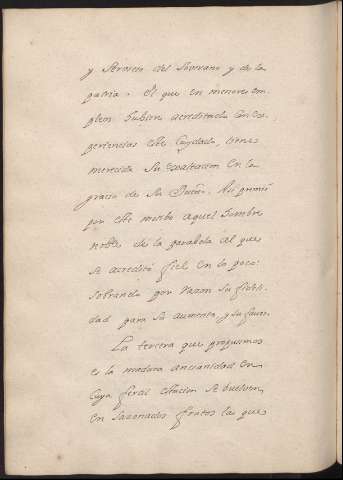 y servicio del Soverano y de la
patria. El que en menores em-
pleos hubiere acreditado con ex-
periencias este cuydado, tiene
merecida su exaltacion en la
gracia de su Dueño. Asi premió
por este merito aquel hombre
noble de la parabola al que
se acreditó fiel en lo poco:
sobrando por razon su fideli-
dad para su aumento, y su favor.
La tercera que proponemos
es la madura ancianidad en
cuya feraz estacion se buelven
en sazonados frutos las que